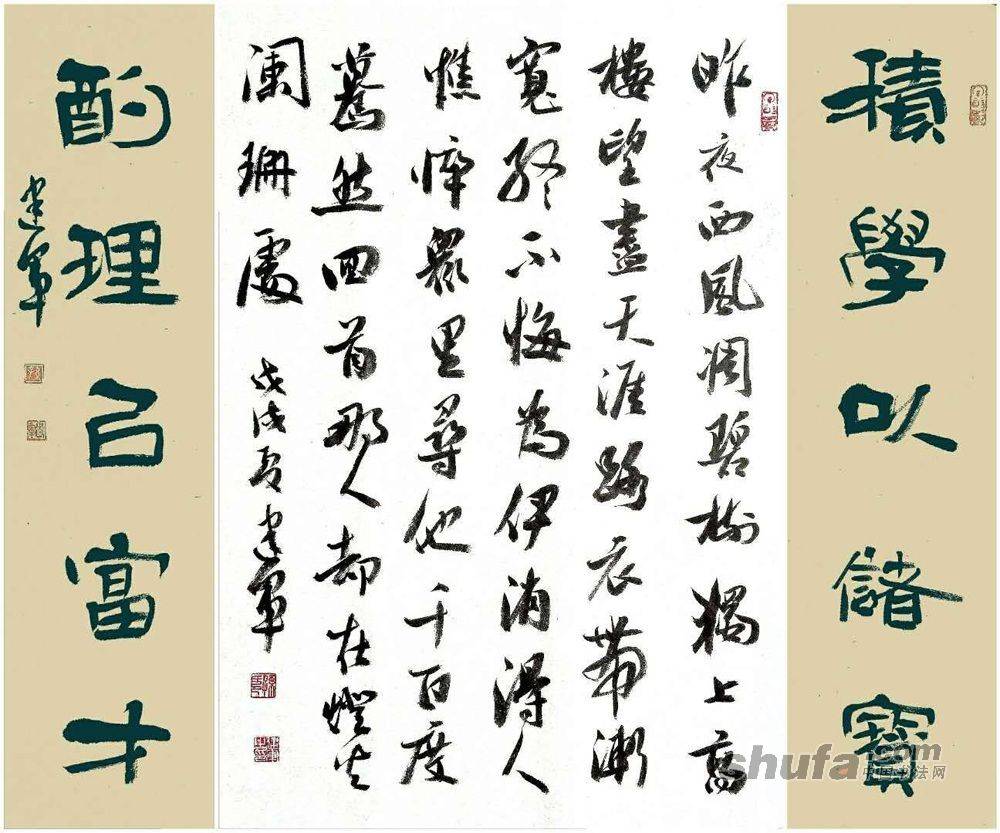 積學以儲寶
昨夜西風凋碧樹獨上高
樓望盡天涯路衣帶漸
寬終不悔為伊消得人
憔悴眾里尋他千百度
驀然回首那人却在燈火
瀾珊處 戊戌夏建軍
酌理㠯富才
建軍
shufa.com
中国书法网